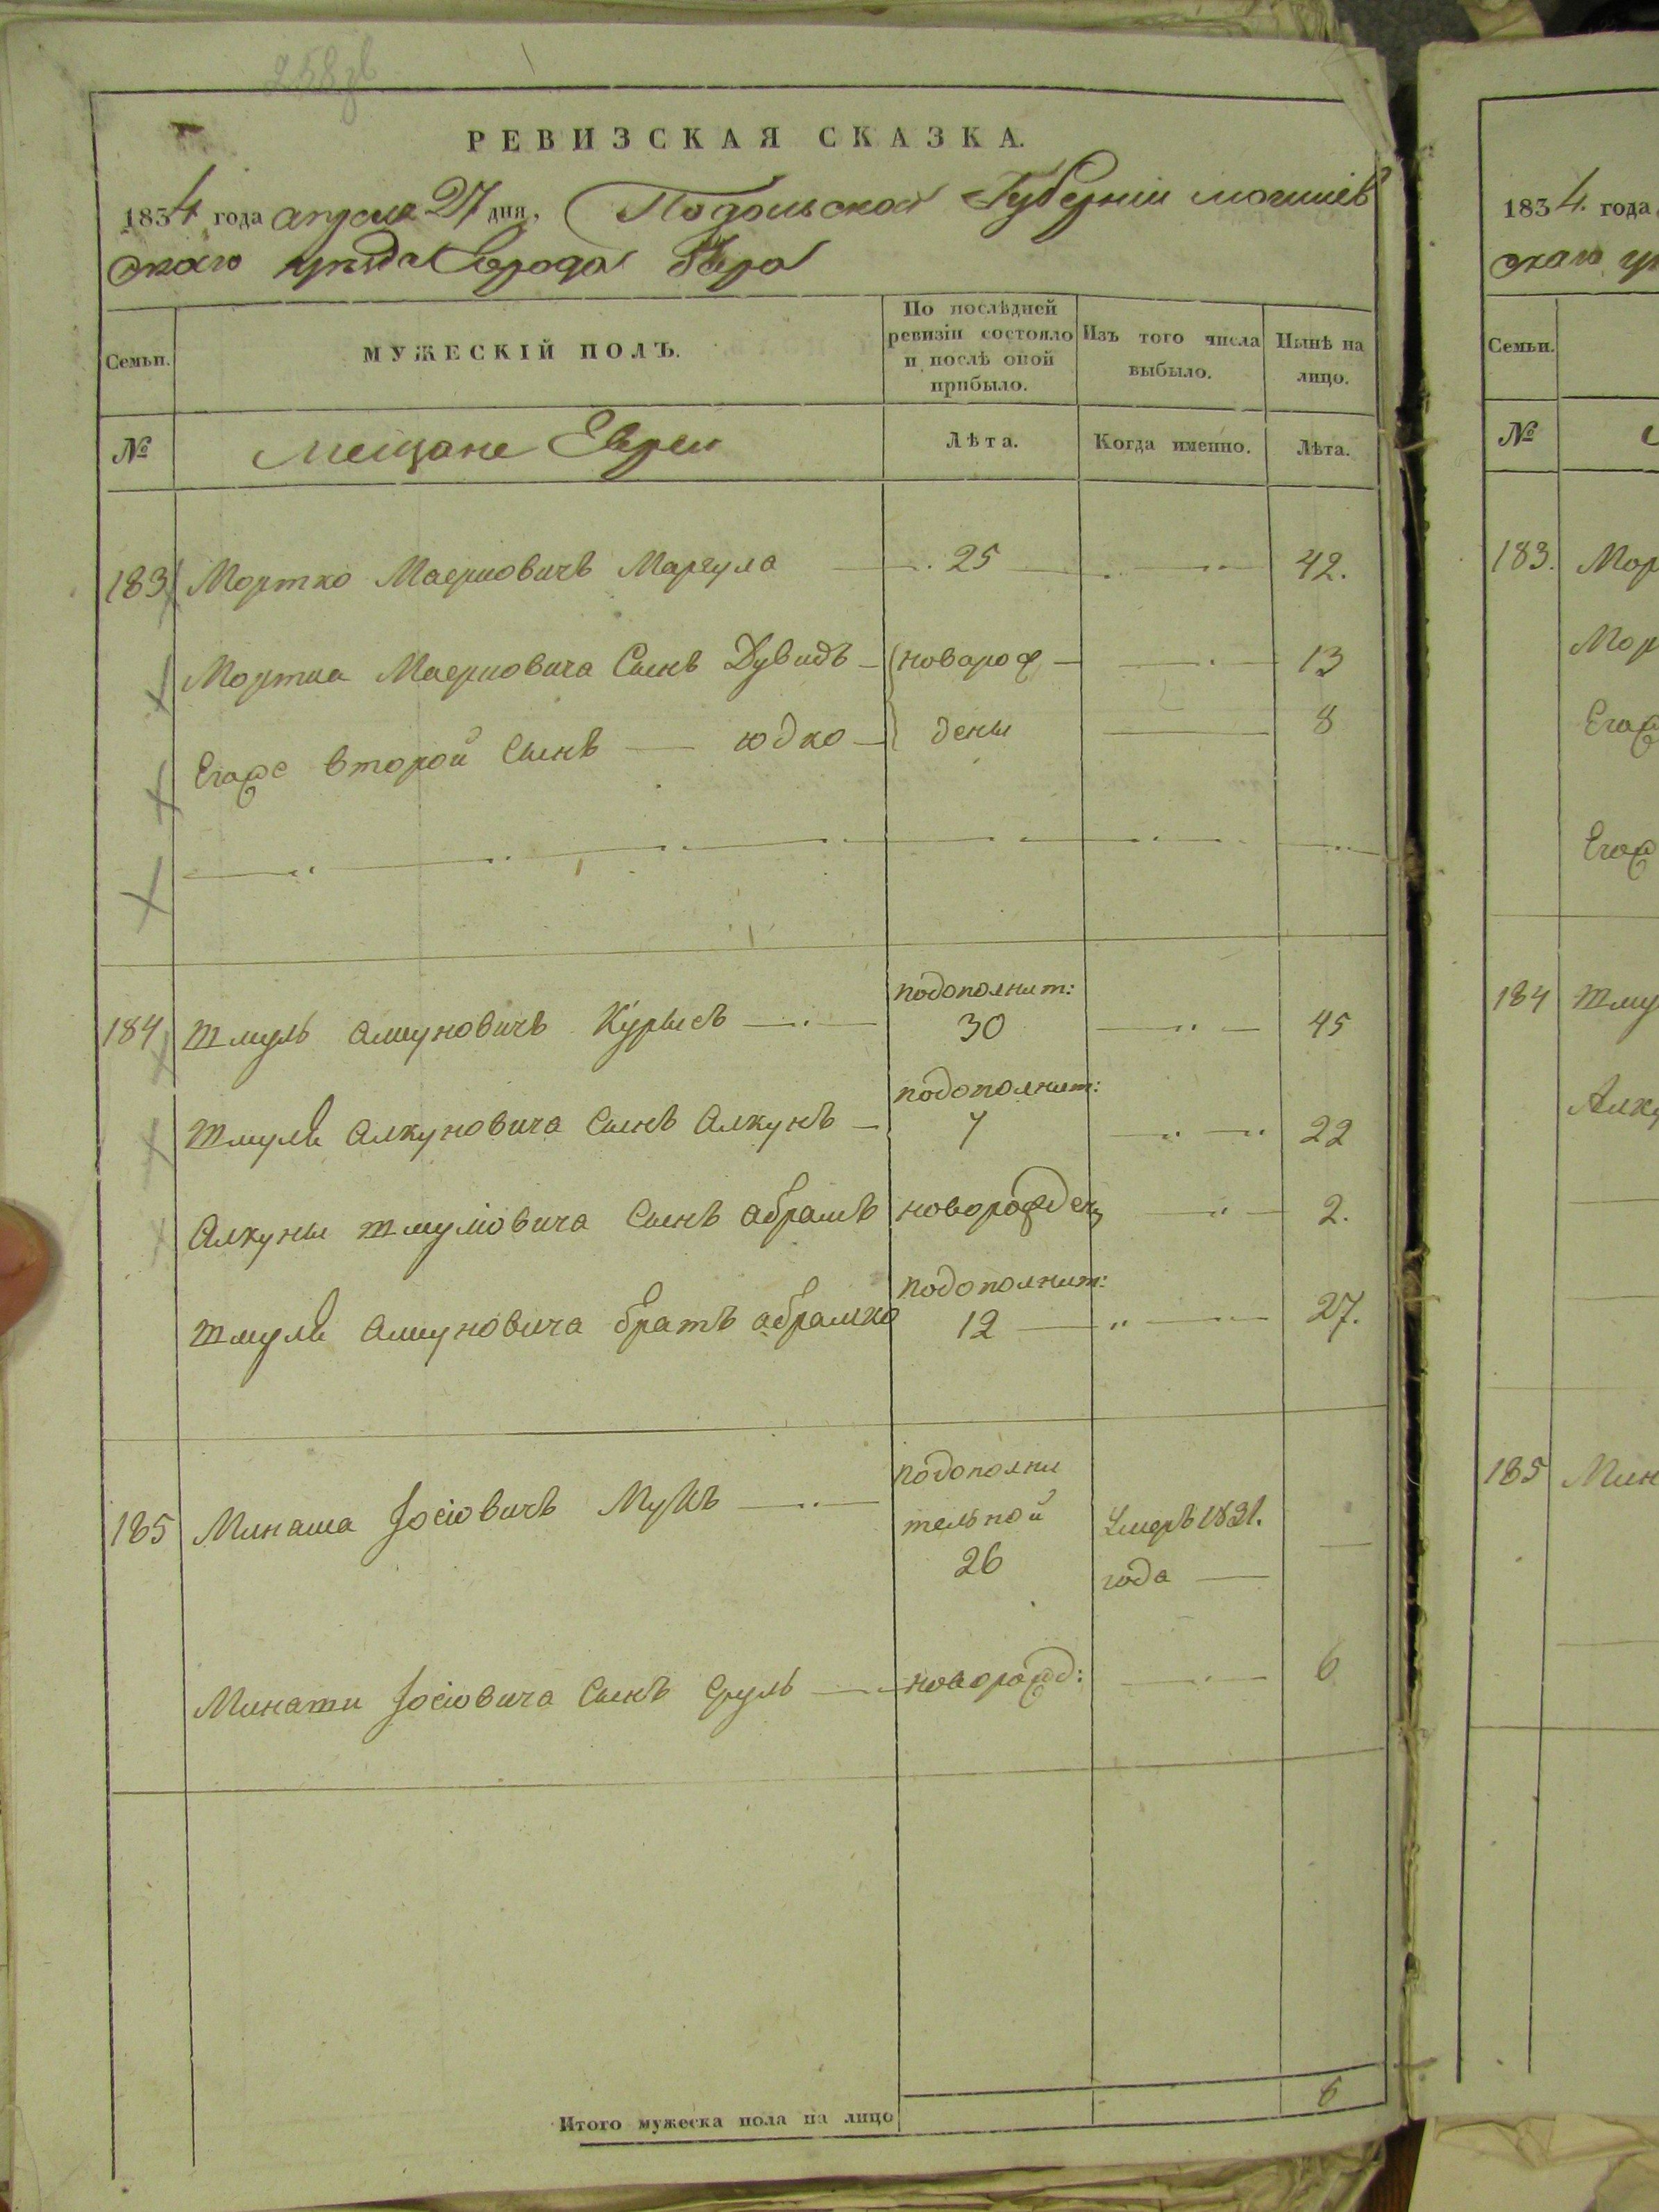 РЕВИЗСКАЯ СКАЗКА.
1834 года апреля 27 дня, Подольской Губернии могилев
скаго уезда Города Бара
Семьи.
МУЖЕСКІЙ ПОЛЪ.
По послѣдней
ревизіи состояло
и послѣ оной
прибыло.
Изъ того числа
выбыло.
Нынѣ на
лицо.
№
Мещане Евреи
Лѣта.
Когда именно.
Лѣта.
183 Мортко Маерновичъ Маргула 25 42.
Мортка Маерновича Сынъ Дувидъ новарож 13
Егоже второй Сынъ юдко дены 8
подополнит:
184 Шмуль Алкуновичъ Курысъ 30 45
подополнит:
Шмуля Алкуновича Сынъ Алкунъ 7 22
Алкуны Шмулиовича Сынъ абрамъ новорожденъ 2.
подополнит:
Шмуля Алкуновича братъ абрамко 12 27.
185 Минаша Іосіовичъ подополни
тельной Умеръ 1831.
26 года
Минаши Іосіовича Сынъ Сруль новорожд: 6
Итого мужеска пола на лицо 6
1834. года
скаго
Семьи.
№
183. Мор
Мор
Егож
Егож
184 Шму
Алку
185 Мин